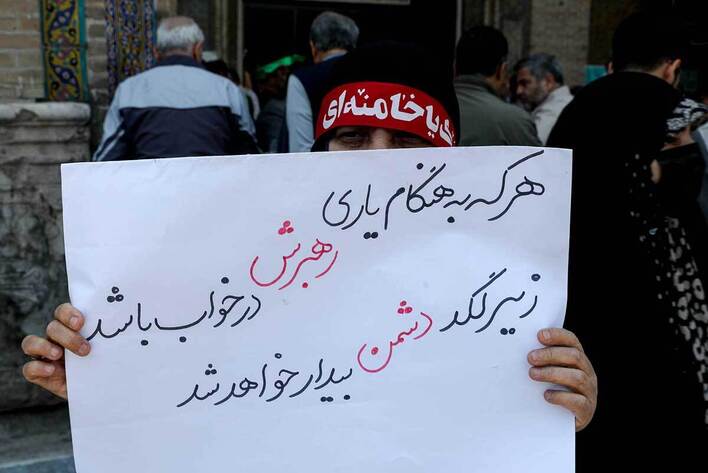 یا خامنه‌ای
هر که به هنگام یاری
رهبرش
در خواب باشد
زیر لگد دشمن
بیدار خواهد شد